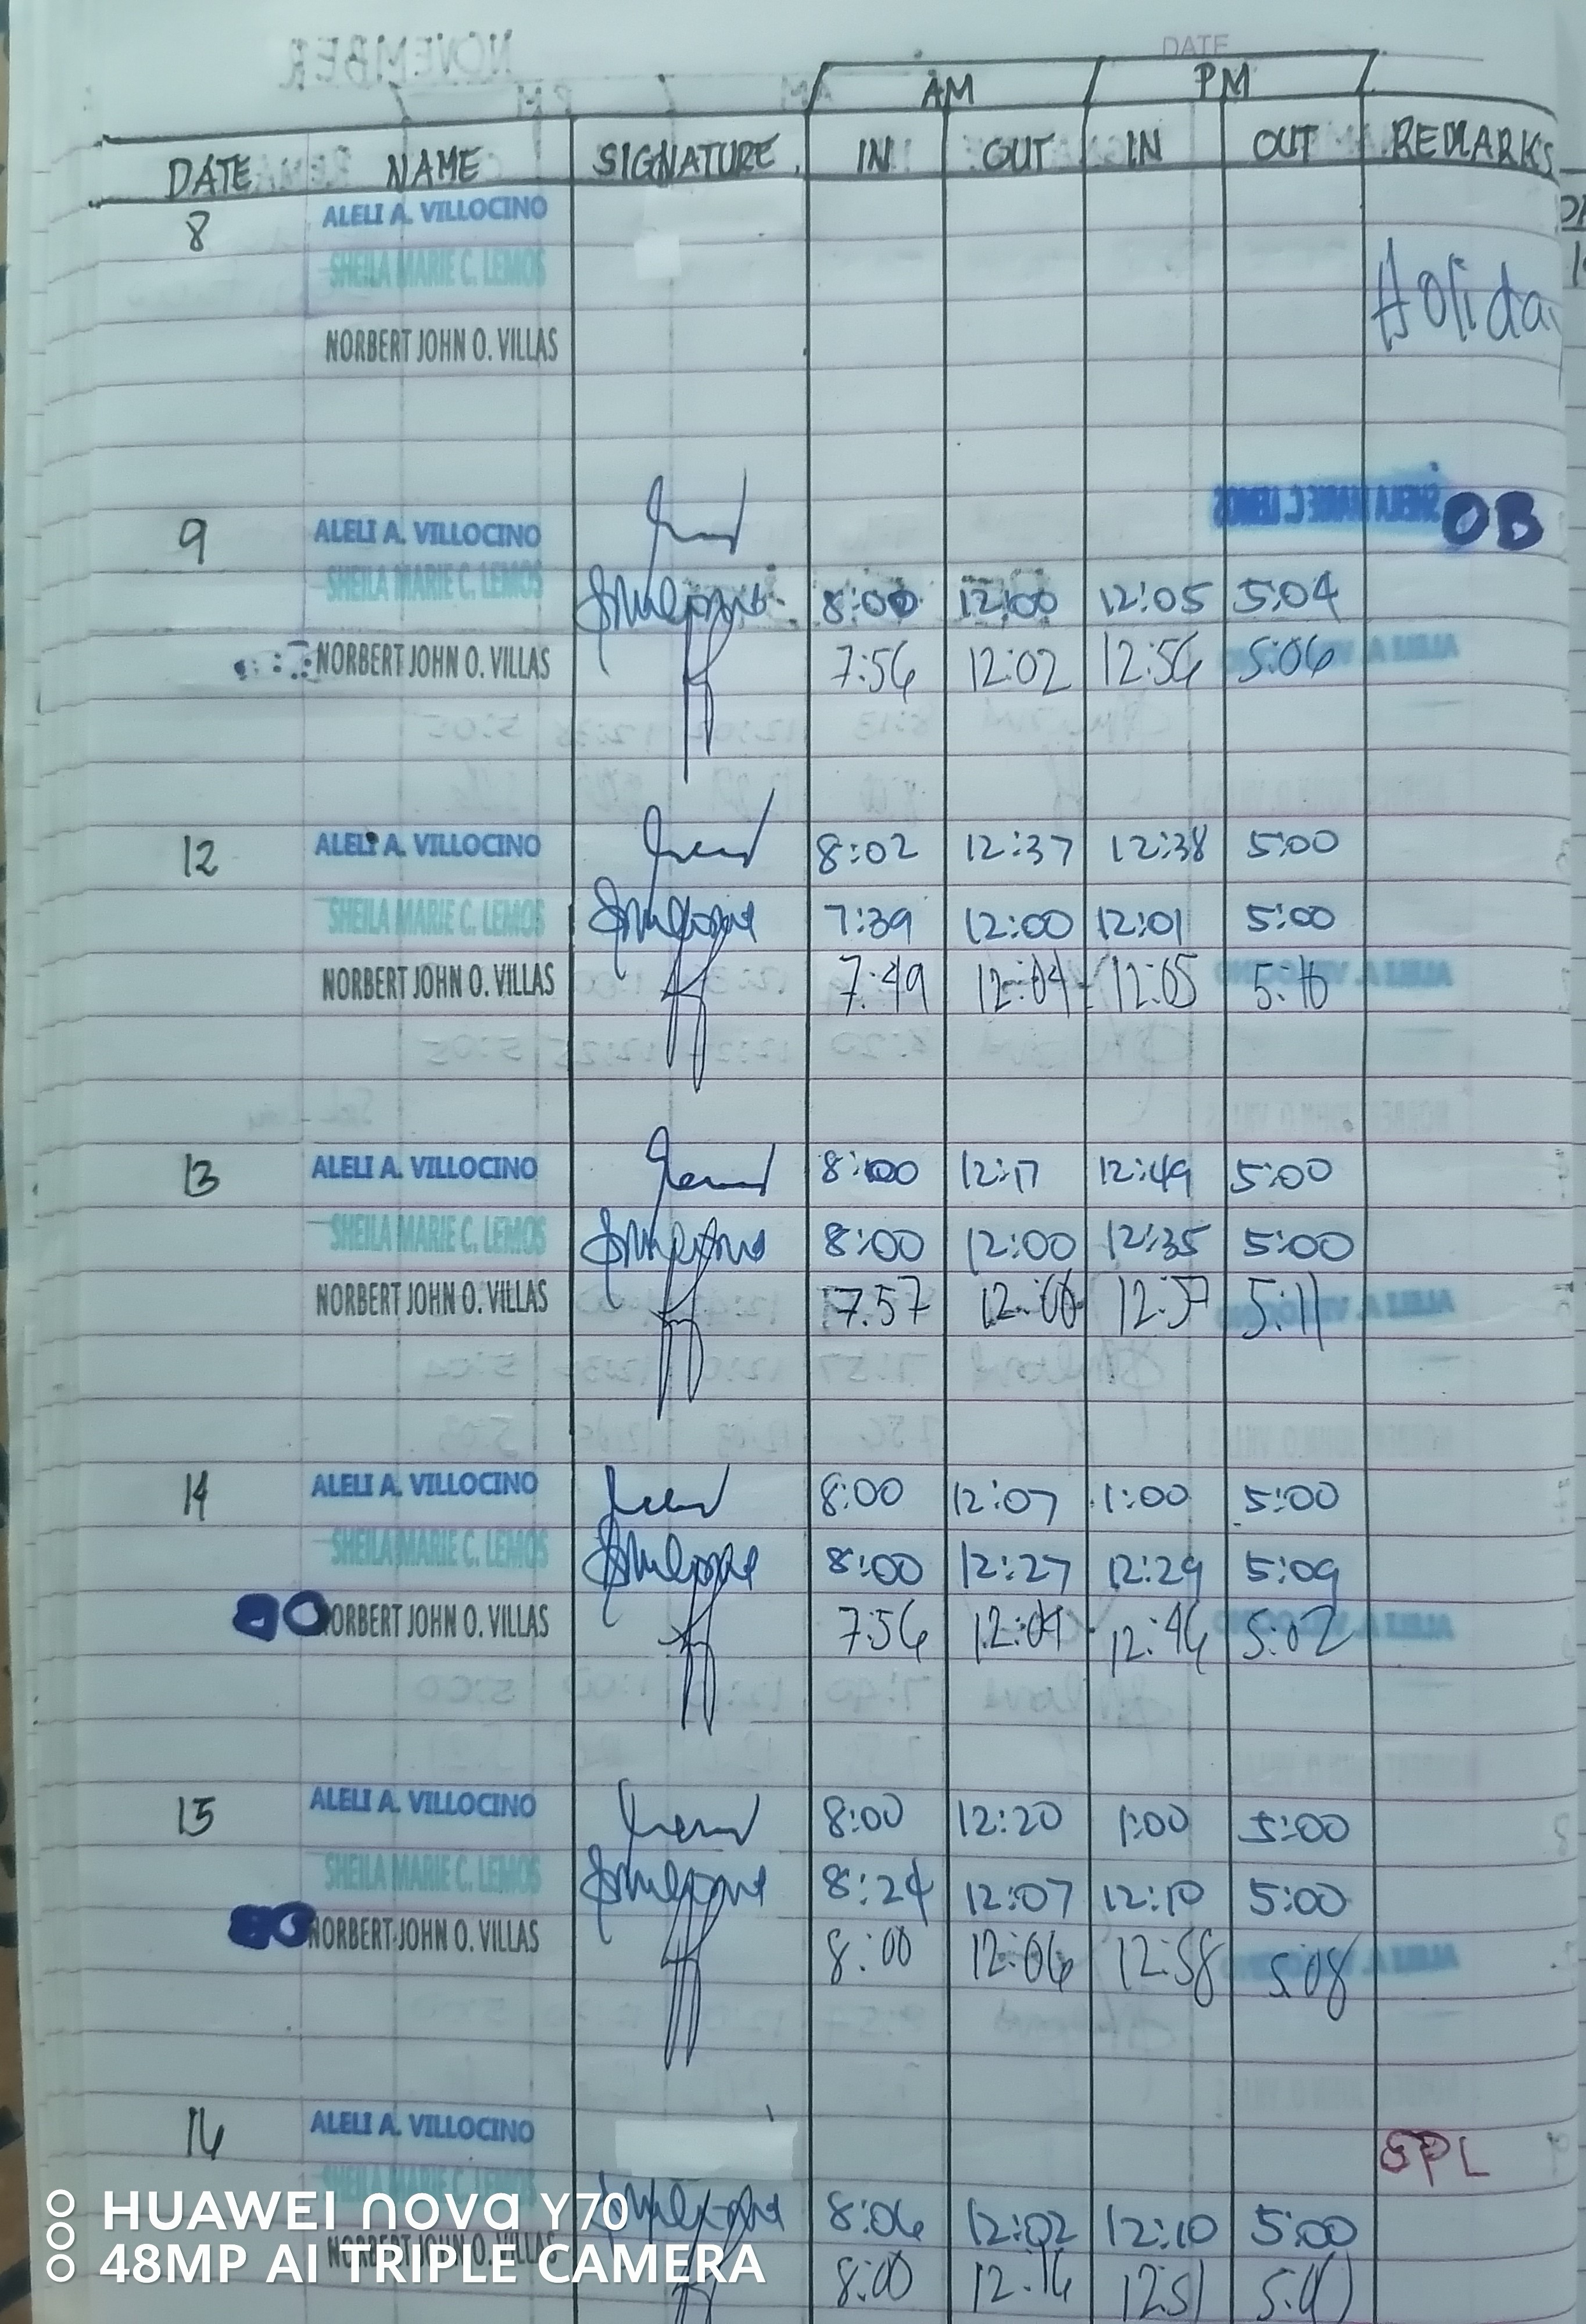 DATE
AM PM
DATE NAME SIGNATURE IN OUT IN OUT REMARKS
8 ALELI A. VILLOCINO
SHEILA MARIE C. LEMOS
Holida
NORBERT JOHN O. VILLAS
9 ALELI A. VILLOCINO OB
SHEILA MARIE C. LEMOS 8:00 12:00 12:05 5:04
NORBERT JOHN O. VILLAS 7:56 12:02 12:56 5:06
12 ALELI A. VILLOCINO 8:02 12:37 12:38 5:00
SHEILA MARIE C. LEMOS 7:39 12:00 12:01 5:00
NORBERT JOHN O. VILLAS 7:49 12:04 12:05 5:10
13 ALELI A. VILLOCINO 8:00 12:17 12:49 5:00
SHEILA MARIE C. LEMOS 8:00 12:00 12:35 5:00
NORBERT JOHN O. VILLAS 7:57 12:57 5:11
14 ALELI A. VILLOCINO 8:00 12:07 1:00 5:00
SHEILA MARIE C. LEMOS 8:00 12:27 12:29 5:09
NORBERT JOHN O. VILLAS 7:56 12:04 12:46 5:02
15 ALELI A. VILLOCINO 8:00 12:20 1:00 5:00
SHEILA MARIE C. LEMOS 8:24 12:07 12:10 5:00
NORBERT JOHN O. VILLAS 8:00 12:06 12:58 5:08
16 ALELI A. VILLOCINO SPL
SHEILA MARIE C. LEMOS 8:06 12:02 12:10 5:00
NORBERT JOHN O. VILLAS 8:00 12:16 12:51
HUAWEI nova Y70
48MP AI TRIPLE CAMERA